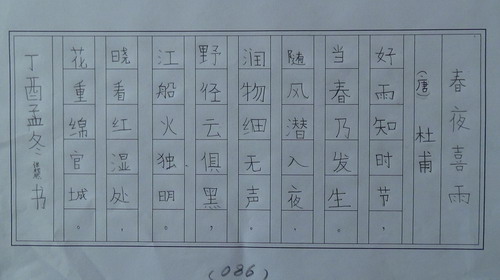 春夜喜雨
（唐）杜甫
好雨知时节，
当春乃发生。
随风潜入夜，
润物细无声。
野径云俱黑，
江船火独明。
晓看红湿处，
花重绵官城。
丁酉孟冬书
(086)